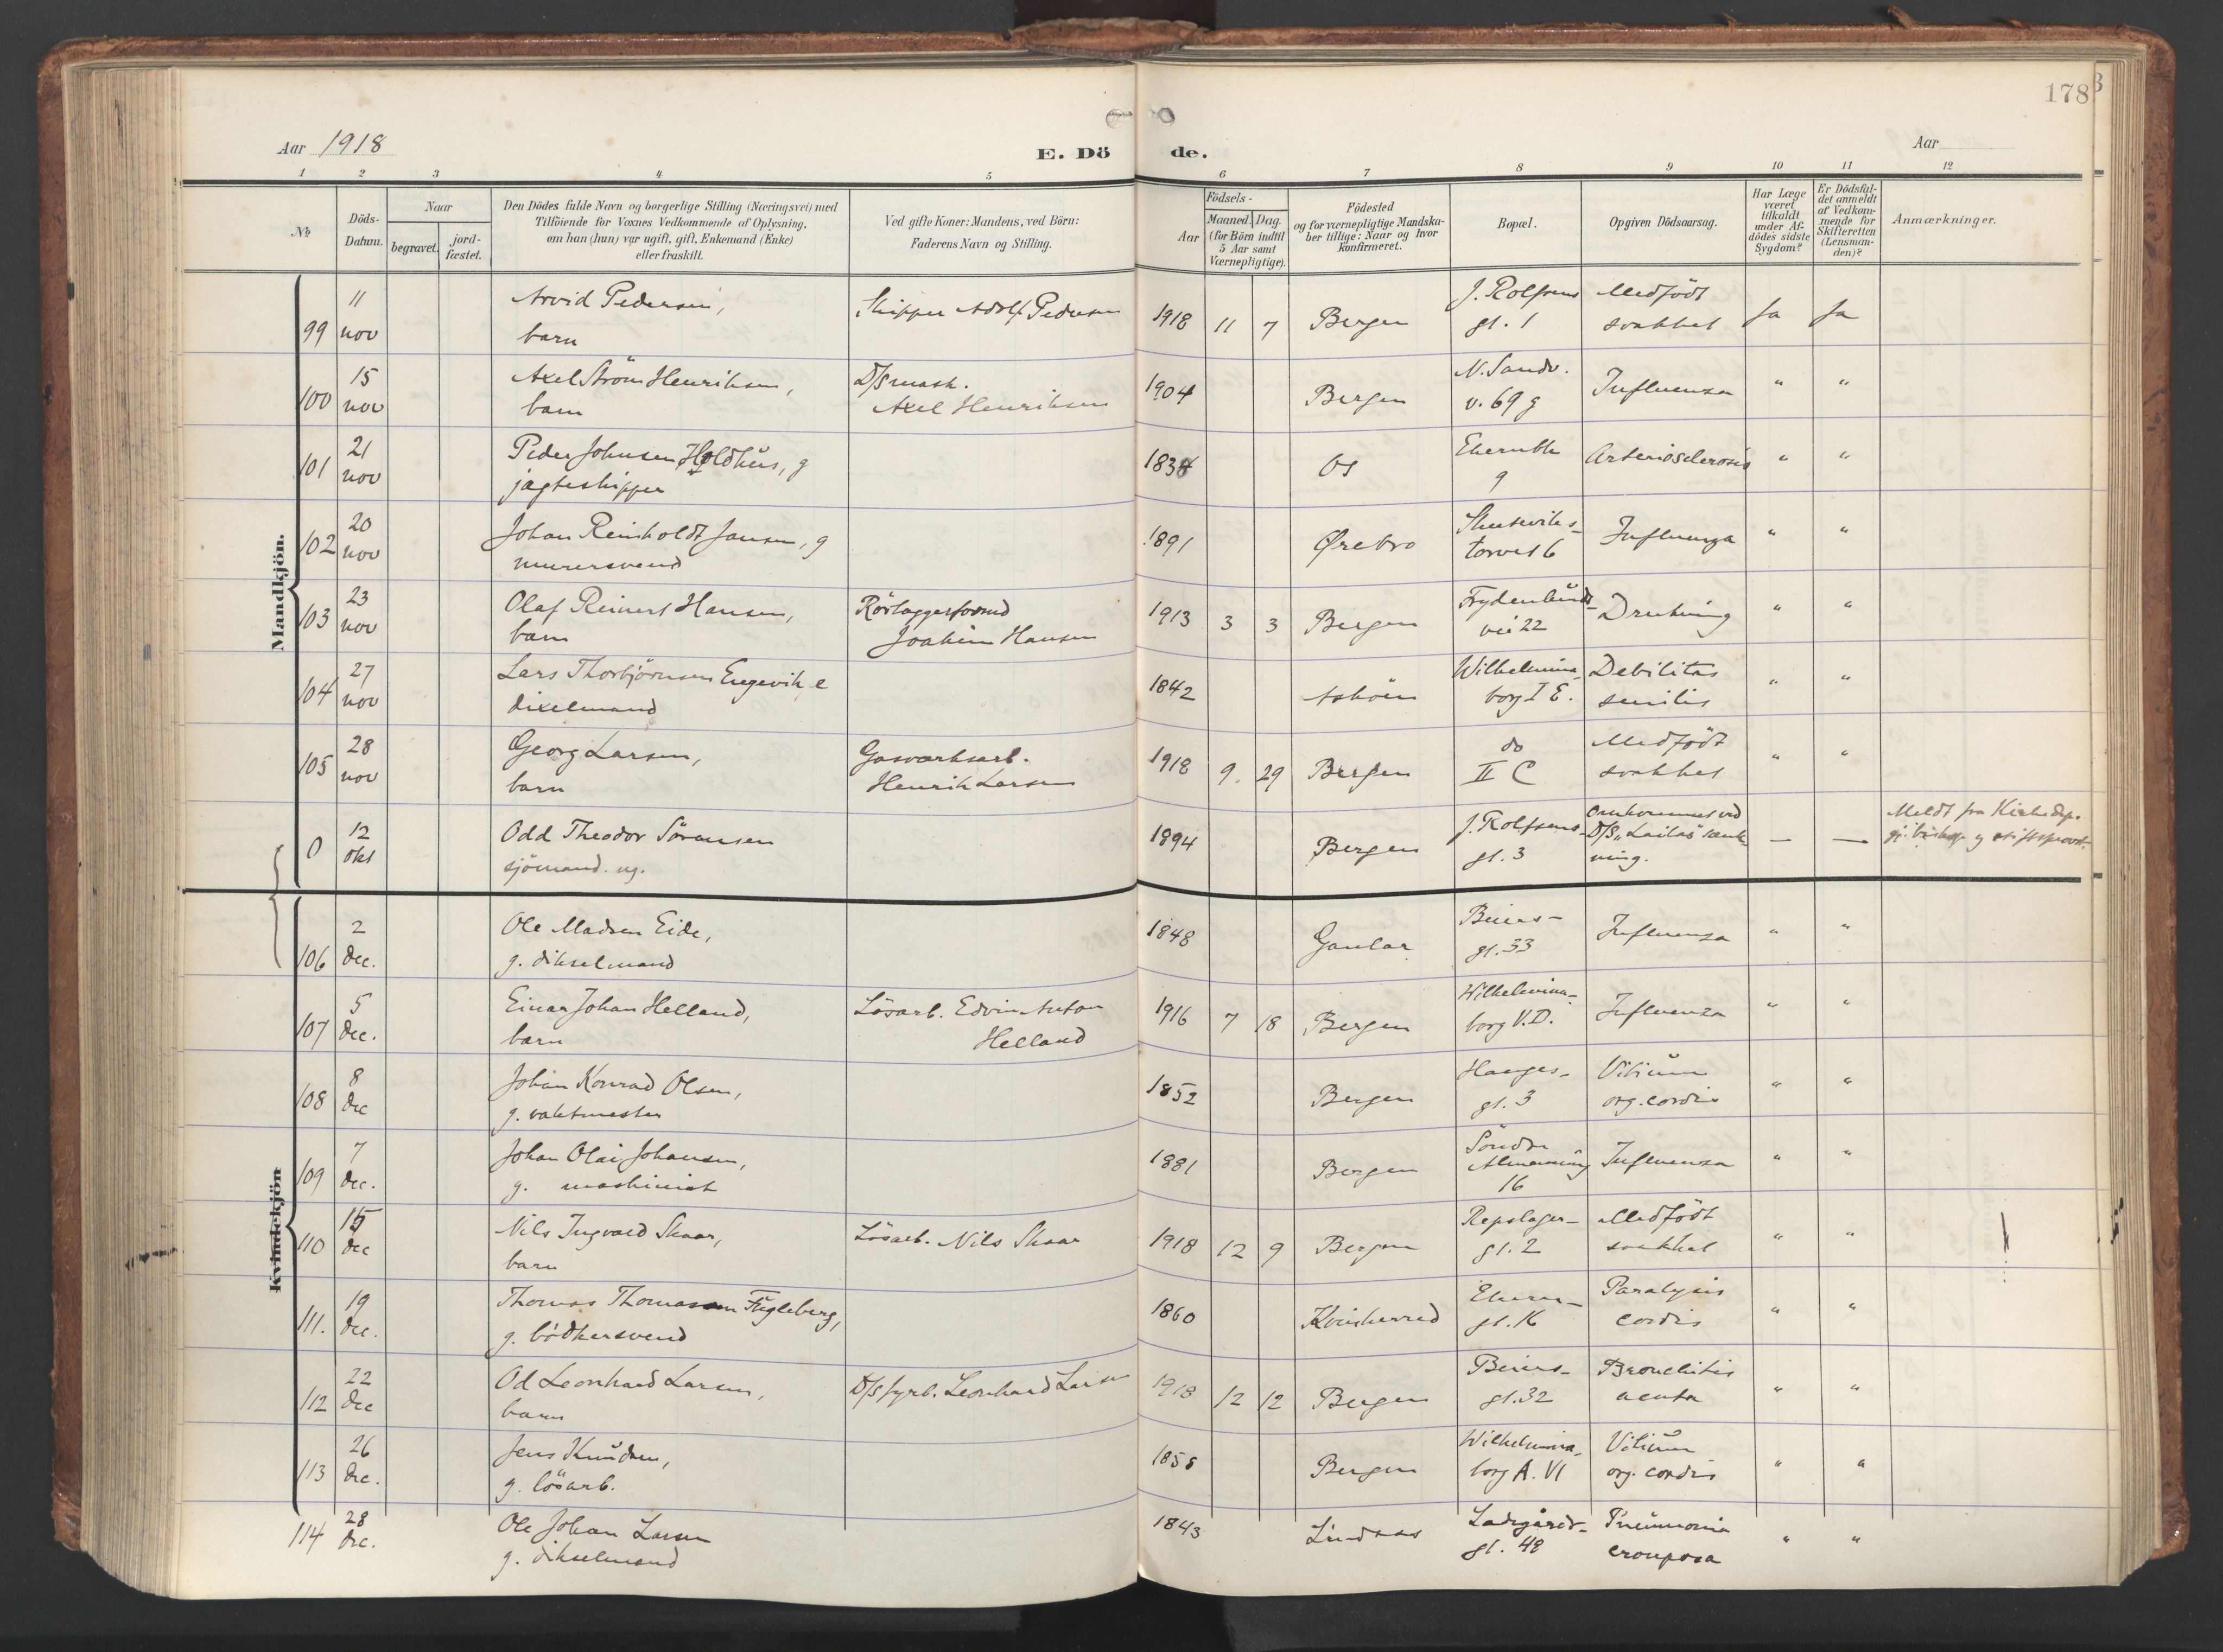 178
Aar 1918
E. Dö
de.
Aar
1 2 3 4 5 6 7 8 9 10 11 12
№
Döds-
Datum.
Naar
begravet.
jord-
fæstet.
Den Dödes fulde Navn og borgerlige Stilling (Næringsvei) med
Tilföiende for Voxnes Vedkommende af Oplysning,
om han (hun) var ugift, gift, Enkemand (Enke)
eller fraskilt.
Ved gifte Koner: Mandens, ved Börn:
Faderens Navn og Stilling.
Födsels-
Aar
Maaned.
Dag.
(for Börn indtil
5 Aar samt
Værnepligtige).
Födested
og for værnepligtige Mandska-
ber tillige: Naar og hvor
konfirmeret.
Bopæl.
Opgiven Dödsaarsag.
Har Læge
været
tilkaldt
under Af-
dödes sidste
Sygdom?
Er Dödsfal-
det anmeldt
af Vedkom-
mende for
Skifteretten
(Lensman-
den)?
Anmærkninger.
Mandkjön.
99 11 nov
Arvid Pedersen,
barn
Skipper Adolf Pedersen
1918 11 7 Bergen
J. Rolfsens
gt. 1
Medfödt
svakhet
Ja Ja
100 15 nov
Axel Ström Henriksen,
barn
D/S mask.
Axel Henriksen
1904 Bergen
N. Sandv.
v. 69 g
Influenza
" "
101 21 nov
Peder Johnsen Holdhus, g
jagteskipper
1834 Os
9
Arteriosclerosis
" "
102 20 nov
Johan Reinholdt Jansen, g
murersvend
1891 Ørebro
Skuteviks-
torvet 6
Influenza
" "
103 23 nov
Olaf Reinert Hansen,
barn
Joakim Hansen
1913 3 3 Bergen
Frydenlunds-
vei 22
Drukning
" "
104 27 nov
Lars Thorbjörnsen Engevik, e
dixelmand
1842 Askøen
Wilhelmina-
borg I E.
Debilitas
senilis
" "
105 28 nov
Georg Larsen,
barn
Gasverksarb.
Henrik Larsen
1918 9. 29 Bergen
do
II C
Medfödt
svakhet
" "
0 12 okt
Odd Theodor Sörensen
sjömand. ug.
1894 Bergen
J. Rolfsens-
gt. 3
Omkommet ved
D/S „Lailas" senk-
ning.
— —
Meldt fra Kirkedep.
gj. biskop og stiftsprovst.
Kvindekjön
106 2 dec.
Ole Madsen Eide,
g. dikselmand
1848 Gaular
Beiers-
gt. 33
Influenza
" "
107 5 dec.
Einar Johan Helland,
barn
Lösarb. Edvin Anton
Helland
1916 7 18 Bergen
Wilhelmina-
borg V. D.
Influenza
" "
108 8 dec
Johan Konrad Olsen,
g. vaktmester
1852 Bergen
Hauges-
gt. 3
Vitium
org. cordis
" "
109 7 dec.
Johan Olai Johansen,
g. maskinist
1881 Bergen
Söndre
Almenning
16
Influenza
" "
110 15 dec
Nils Ingvald Skaar,
barn
Lösarb. Nils Skaar
1918 12 9 Bergen
Repslager-
gt. 2
Medfödt
svakhet
" "
111. 19 dec.
Thomas Thomassen Fugleberg,
g. bödkersvend
1860 Kvinherred
gt. 16
Paralysis
cordis
" "
112 22 dec
Od Leonhard Larsen,
barn
D/S fyrb. Leonhard Larsen
1918 12 12 Bergen
Beiers-
gt. 32
Bronchitis
acuta
" "
113 26 dec.
Jens Knudsen,
g. lösarb.
1855 Bergen
Wilhelmina-
borg A. VI
Vitium
org. cordis
" "
114 28 dec.
Ole Johan Larsen
g. dikselmand
1843 Lindaas
Ladegårds-
gt. 48
Pneumonia
crouposa
" "